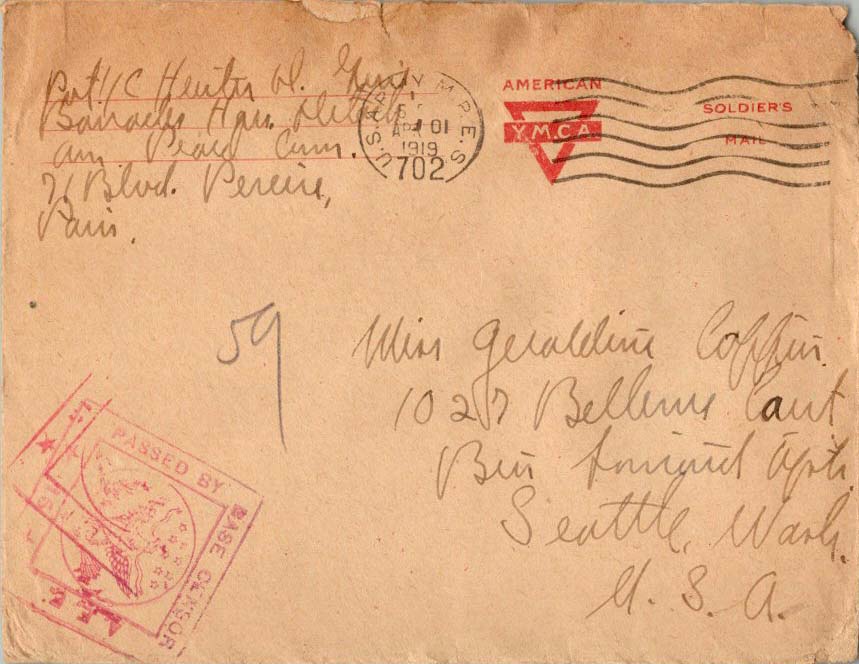 Pvt 1/C Hunter D.
Barracks Hqrs. Detach
Am Peace Com.
71 Blvd. Pereire,
Paris.
U.S. ARMY M.P.E.S.
APR 01
1919
702
AMERICAN
Y.M.C.A
SOLDIER'S
MAIL
59
Miss Geraldine Coffin.
1027 Bellevue Court
Apts.
Seattle, Wash.
U. S. A.
PASSED BY
BASE CENSOR